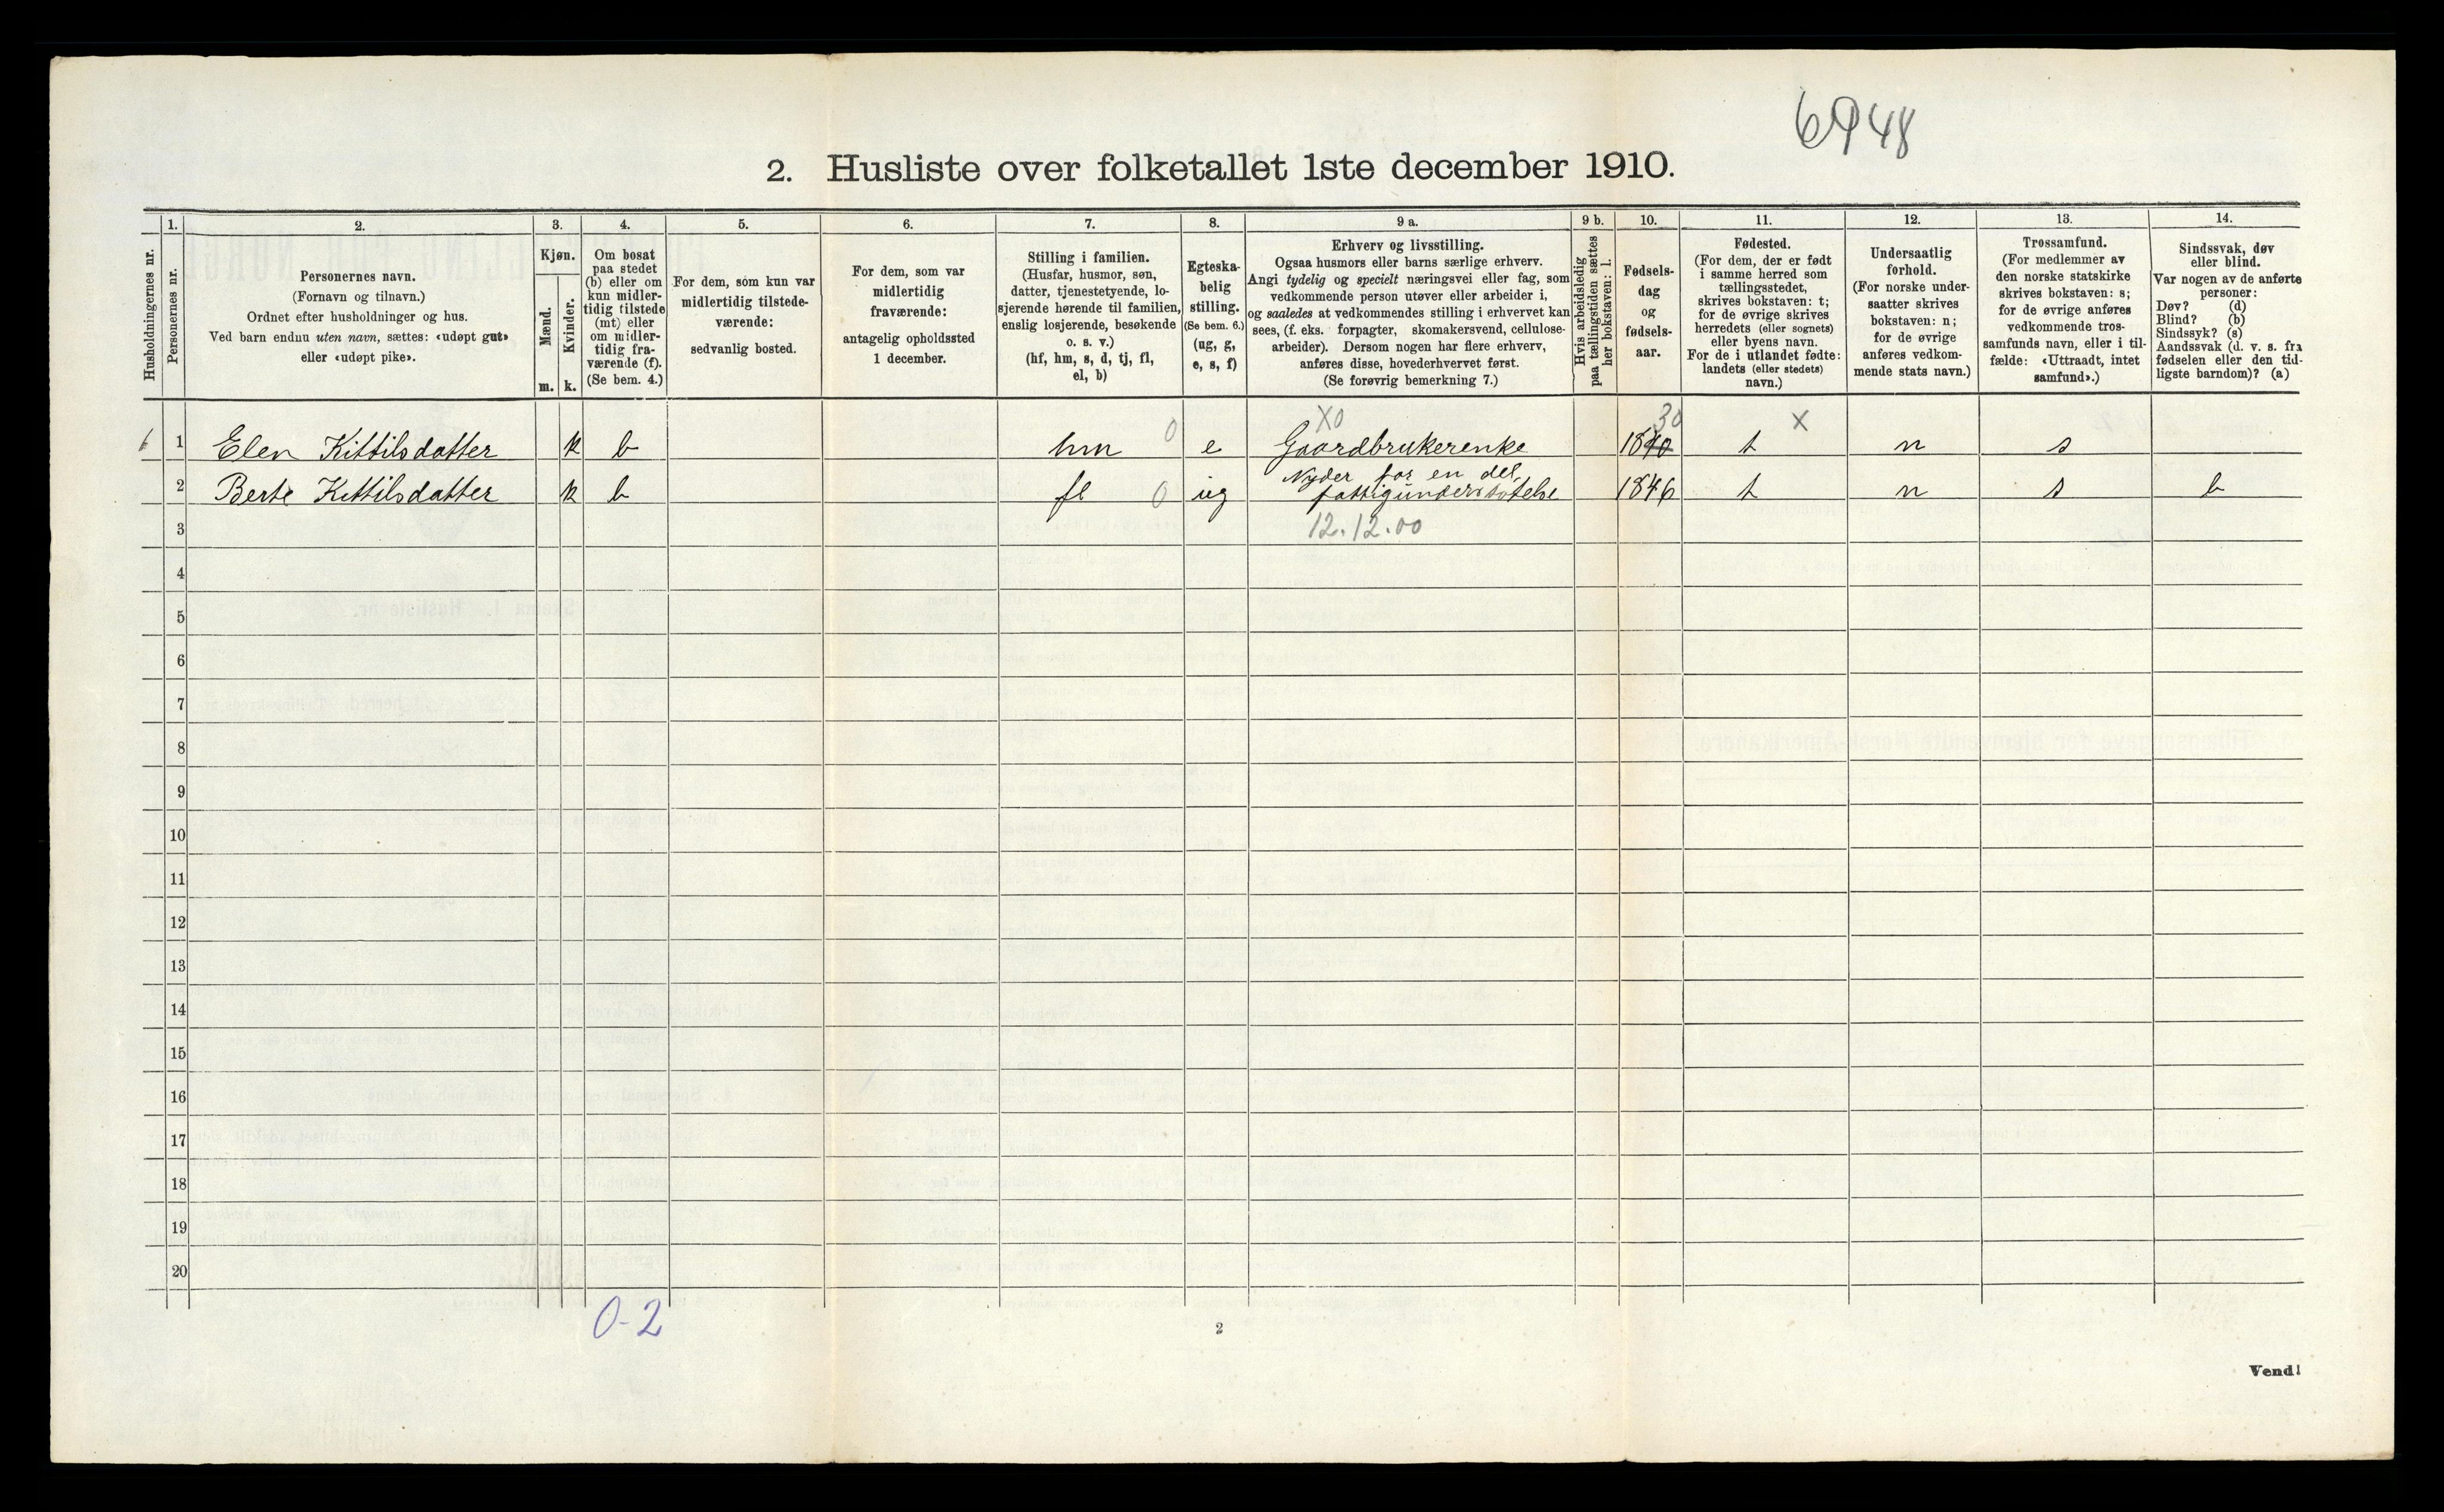 6948
2. Husliste over folketallet 1ste december 1910.
Husholdningernes nr.
1.
Personernes nr.
2.
Personernes navn.
(Fornavn og tilnavn.)
Ordnet efter husholdninger og hus.
Ved barn endnu uten navn, sættes: «udøpt gut»
eller «udøpt pike».
3.
Kjøn.
Mænd.
Kvinder.
m. k.
4.
Om bosat
paa stedet
(b) eller om
kun midler-
tidig tilstede
(mt) eller
om midler-
tidig fra-
værende (f).
(Se bem. 4.)
5.
For dem, som kun var
midlertidig tilstede-
værende:
sedvanlig bosted.
6.
For dem, som var
midlertidig
fraværende:
antagelig opholdssted
1 december.
7.
Stilling i familien.
(Husfar, husmor, søn,
datter, tjenestetyende, lo-
sjerende hørende til familien,
enslig losjerende, besøkende
o. s. v.)
(hf, hm, s, d, tj, fl,
el, b)
8.
Egteska-
belig
stilling.
(Se bem. 6.)
(ug, g,
e, s, f)
9 a.
Erhverv og livsstilling.
Ogsaa husmors eller barns særlige erhverv.
Angi tydelig og specielt næringsvei eller fag, som
vedkommende person utøver eller arbeider i,
og saaledes at vedkommendes stilling i erhvervet kan
sees, (f. eks. forpagter, skomakersvend, cellulose-
arbeider). Dersom nogen har flere erhverv,
anføres disse, hovederhvervet først.
(Se forøvrig bemerkning 7.)
9 b.
Hvis arbeidsledig
paa tællingstiden sættes
her bokstaven: l.
10.
Fødsels-
dag
og
fødsels-
aar.
11.
Fødested.
(For dem, der er født
i samme herred som
tællingsstedet,
skrives bokstaven: t;
for de øvrige skrives
herredets (eller sognets)
eller byens navn.
For de i utlandet fødte:
landets (eller stedets)
navn.)
12.
Undersaatlig
forhold.
(For norske under-
saatter skrives
bokstaven: n;
for de øvrige
anføres vedkom-
mende stats navn.)
13.
Trossamfund.
(For medlemmer av
den norske statskirke
skrives bokstaven: s;
for de øvrige anføres
vedkommende tros-
samfunds navn, eller i til-
fælde: «Uttraadt, intet
samfund».)
14.
Sindssvak, døv
eller blind.
Var nogen av de anførte
personer:
Døv? (d)
Blind? (b)
Sindssyk? (s)
Aandssvak (d. v. s. fra
fødselen eller den tid-
ligste barndom)? (a)
X0 30 X
1 Elen Kittilsdatter k b hm 0 e Gaardbrukerenke 1840 t n s
Nyder for en del
2 Berte Kittilsdatter k b fl 0 ug fattigunderstøtelse 1846 t n s b
12.12.00
3
4
5
6
7
8
9
10
11
12
13
14
15
16
17
18
19
20
0-2
2
Vend!